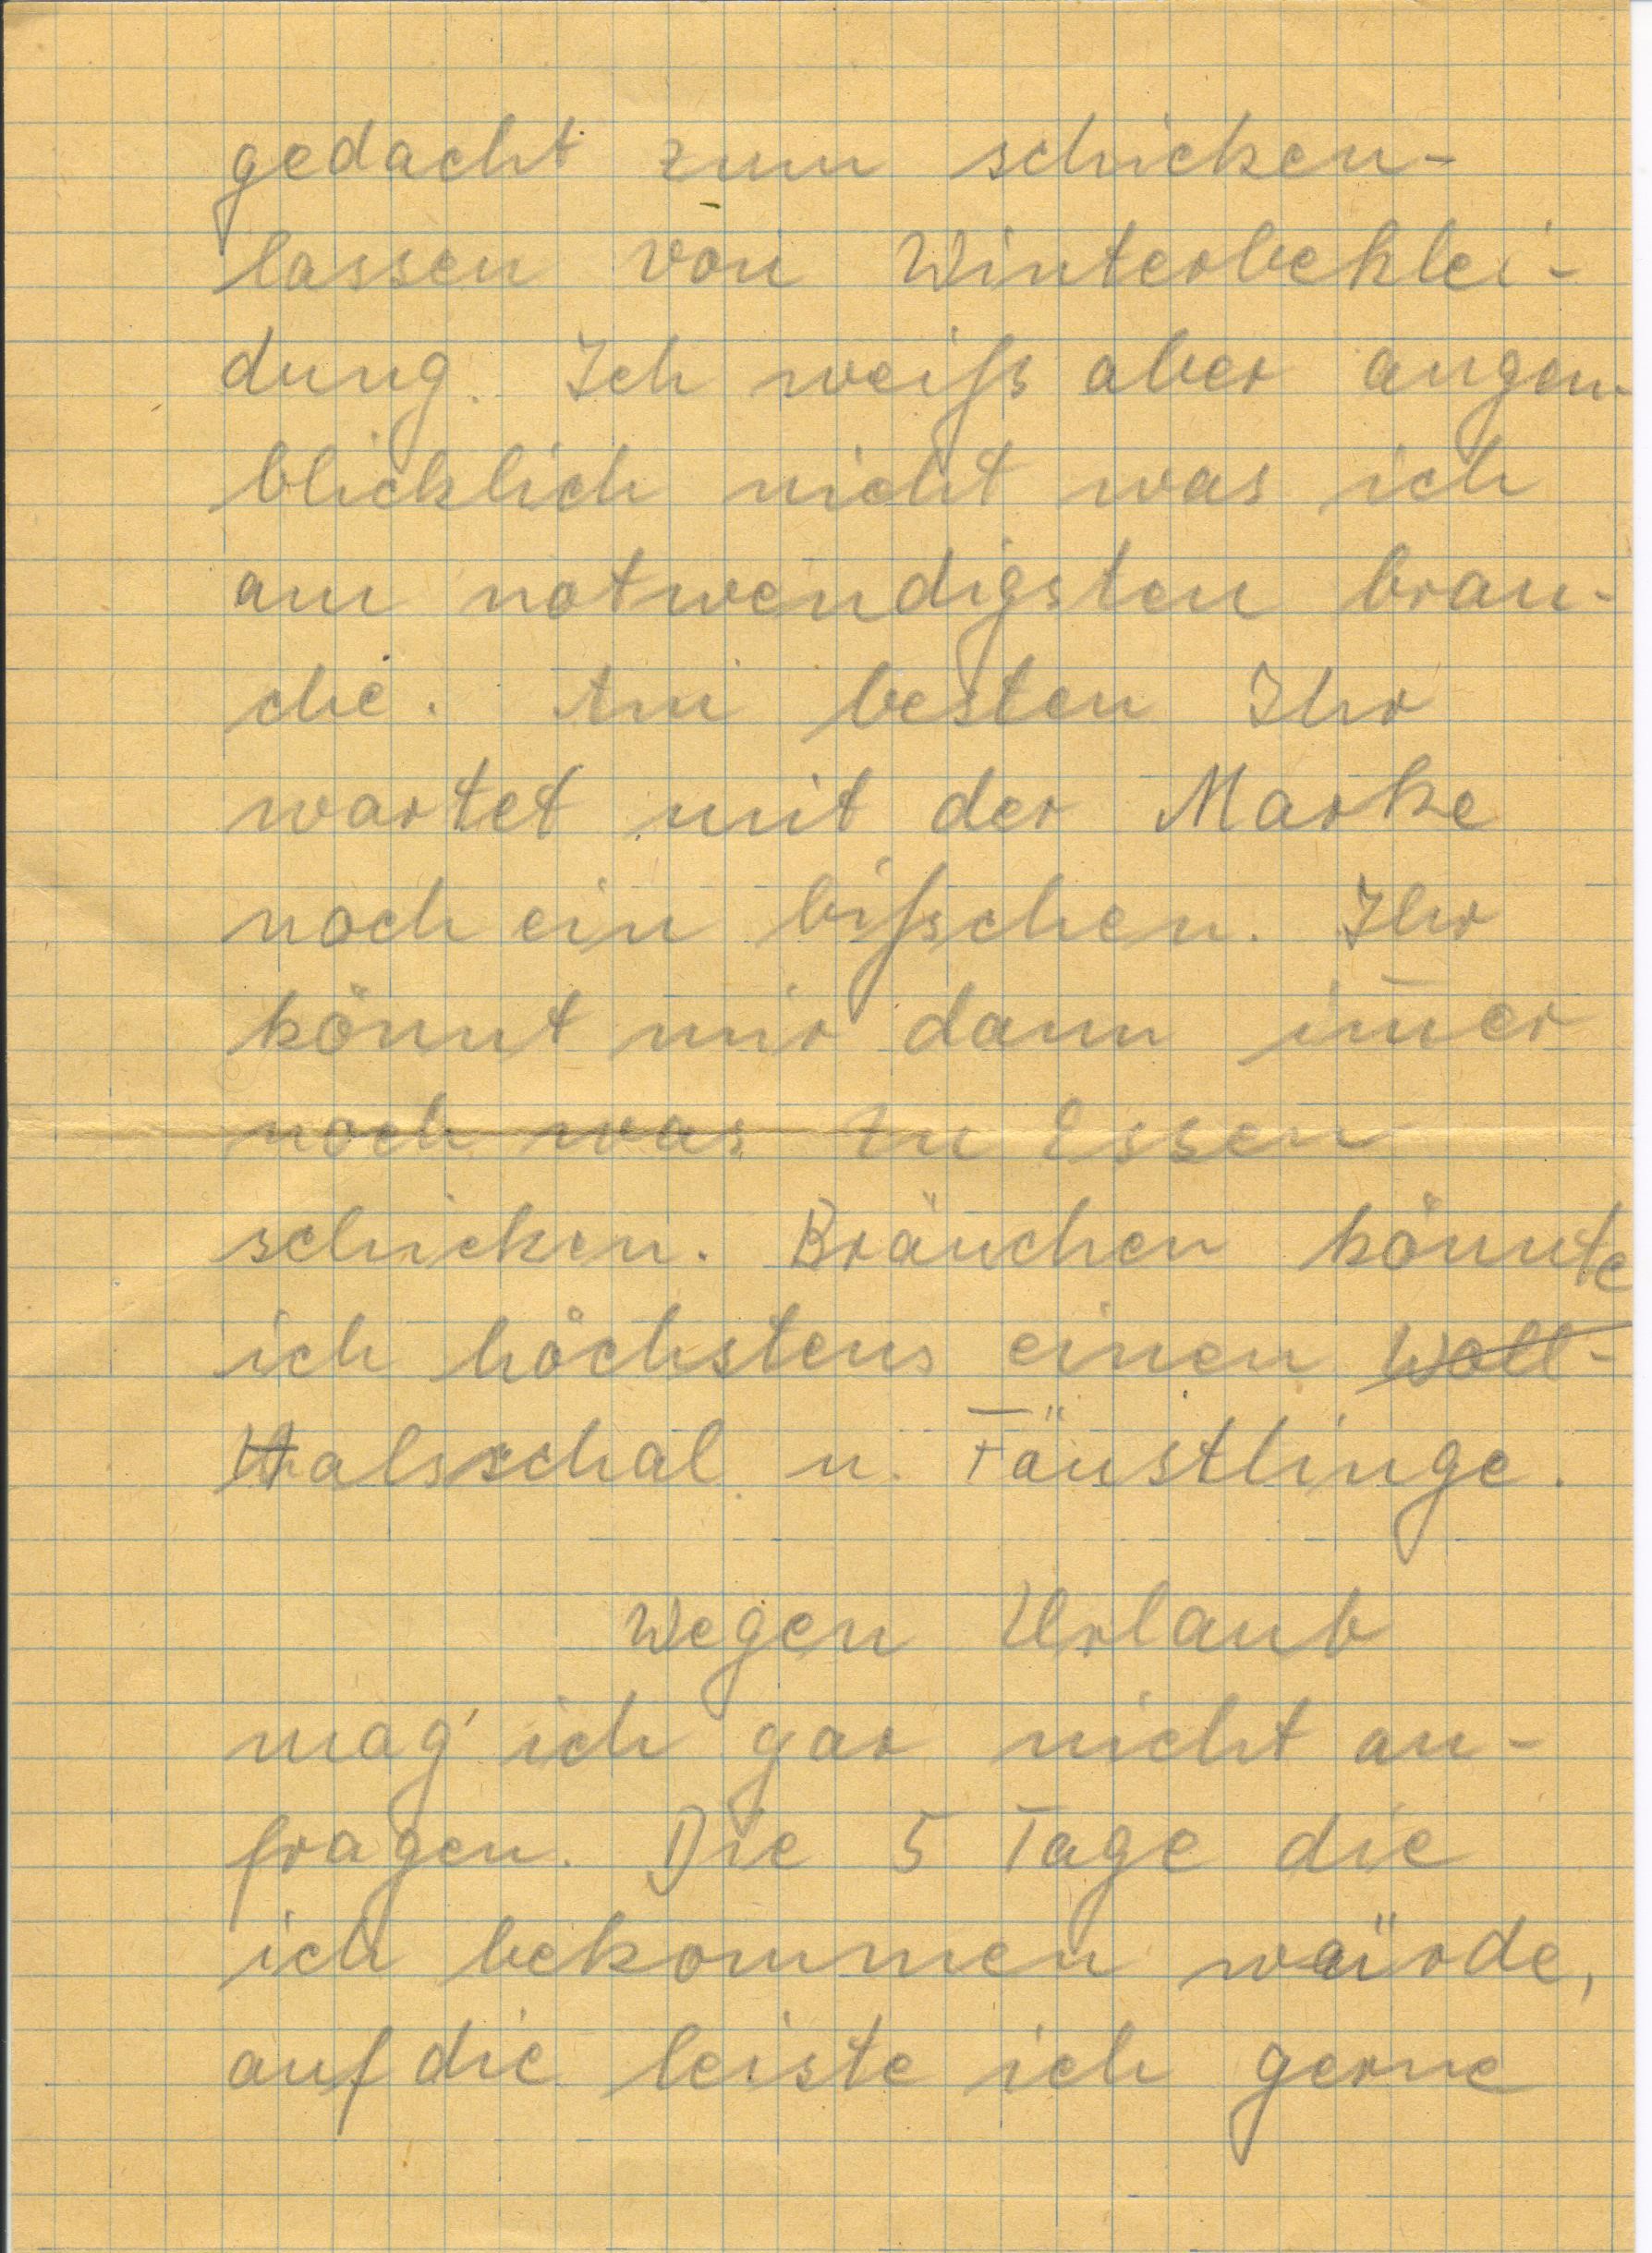 gedacht zum schicken-
lassen von Winterbeklei-
dung. Ich weiſs aber augen-
blicklich nicht was ich
am notwendigsten brau-
che. Am besten Ihr
wartet mit der Marke
noch ein biſschen. Ihr
könnt mir dann im̅er
noch was zu Essen
schicken. Bräuchen könnte
ich höchstens einen Woll-
Halsschal u. Fäustlinge.
Wegen Urlaub
mag' ich gar nicht an-
fragen. Die 5 Tage die
ich bekommen würde,
auf die leiste ich gerne